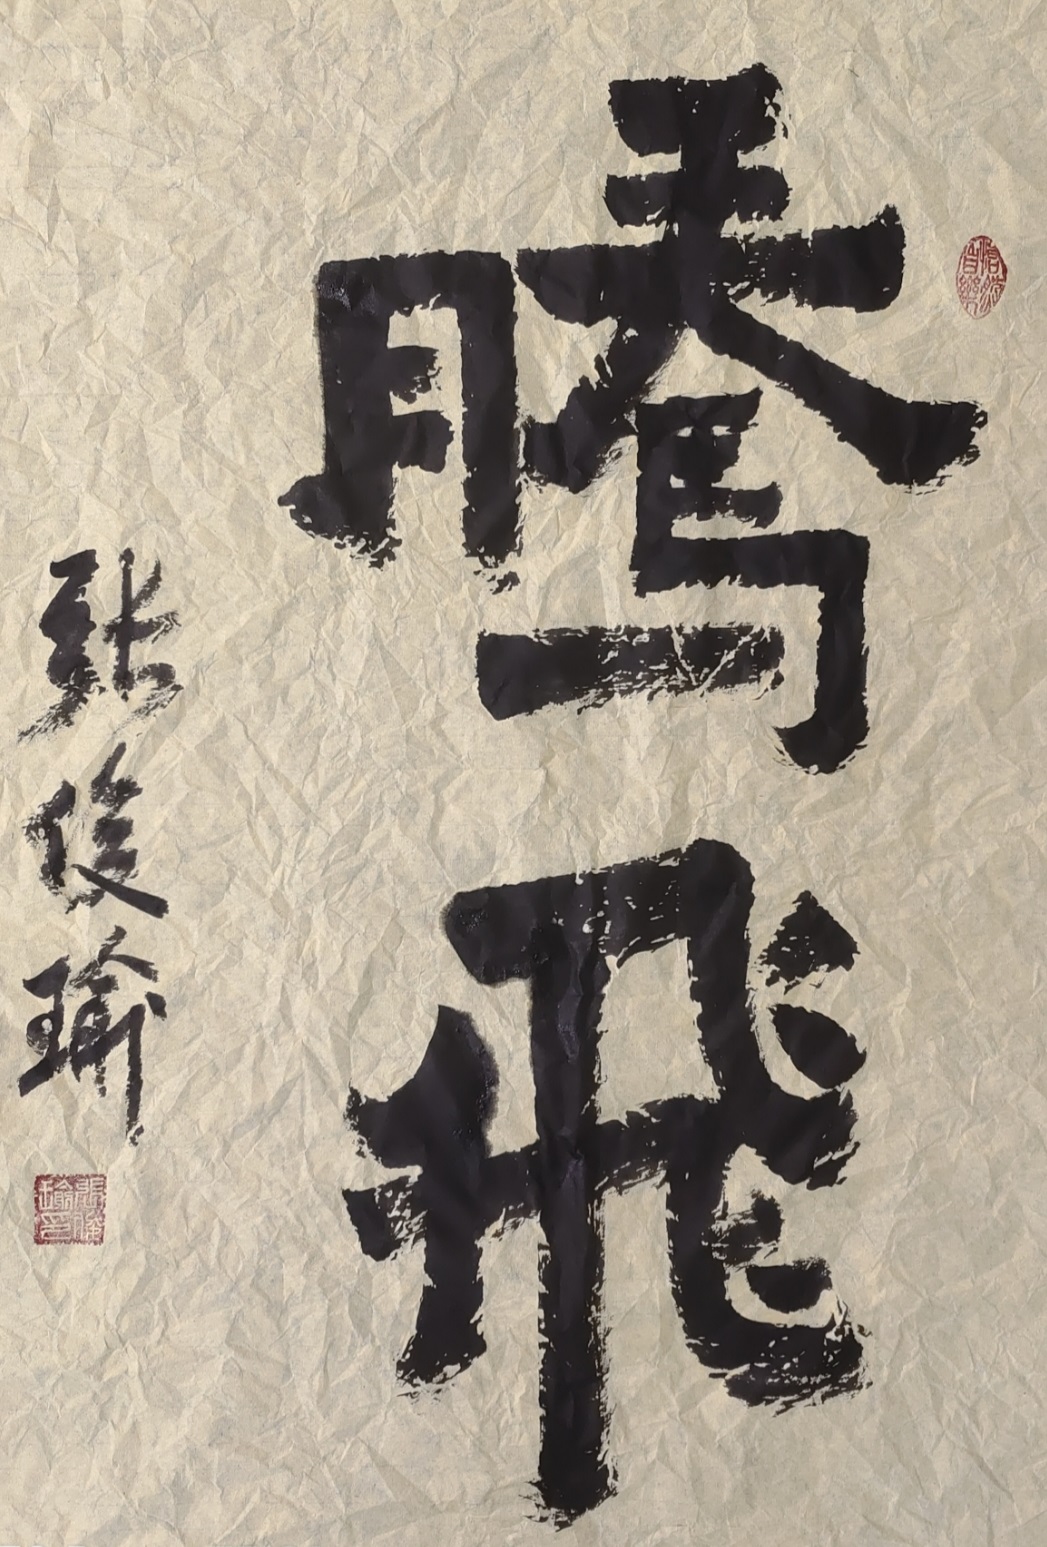 騰飛
張俊瑜